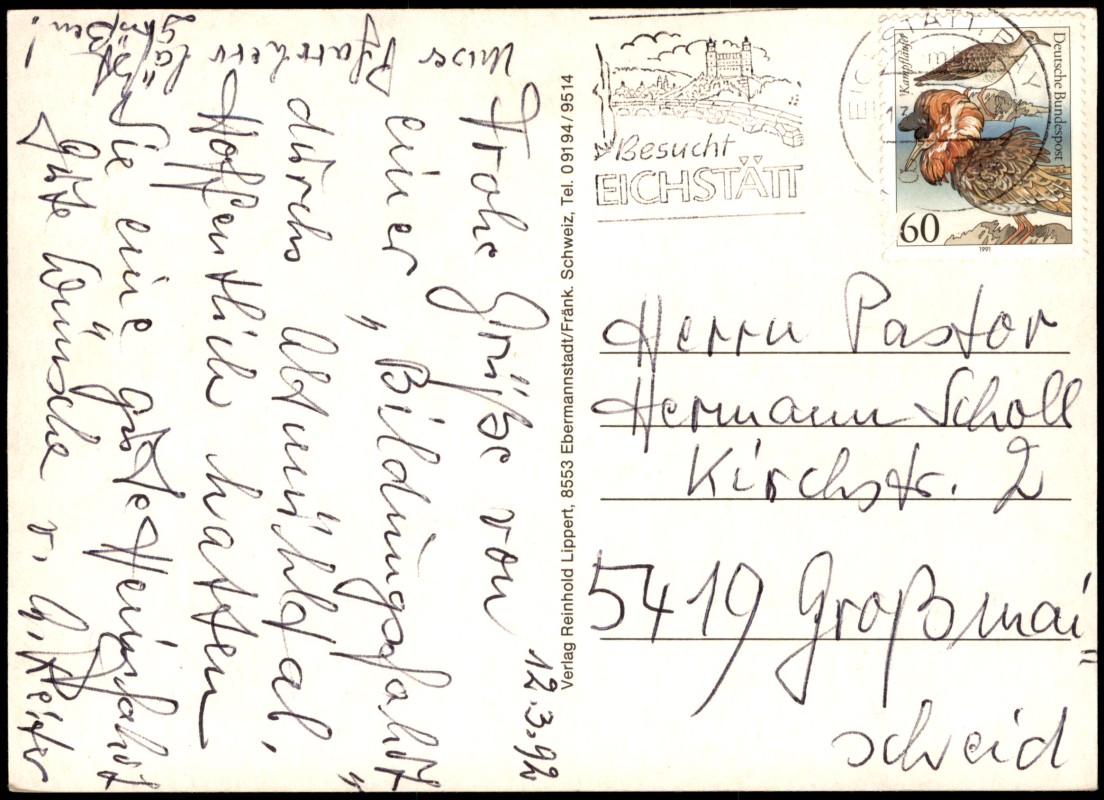 12.3.92
Frohe Grüße von
einer „Bildungsfahrt"
durchs Altmühltal.
Hoffentlich hatten
Sie eine gute Heimfahrt
Gute Wünsche v.
Unser
Pfarrherr
läßt
grüßen!
Verlag Reinhold Lippert, 8553 Ebermannstadt/Fränk. Schweiz, Tel. 09194/9514
Besucht
EICHSTÄTT
Deutsche Bundespost
Kampfläufer
60
1991
Herrn Pastor
Hermann Scholl
Kirchstr. 2
5419 Großmai=
scheid